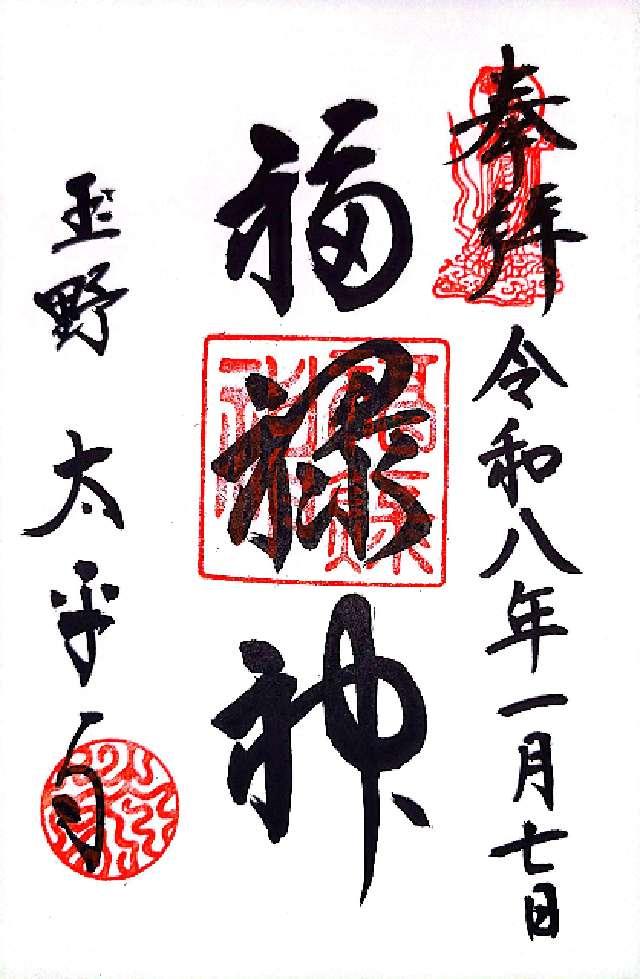 奉拝 令和八年一月七日
福禄神
玉野 太平寺